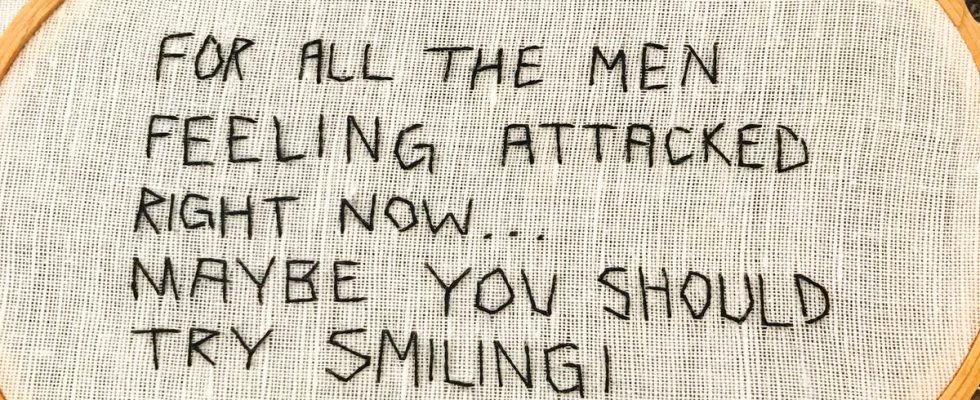 FOR ALL THE MEN
FEELING ATTACKED
RIGHT NOW...
MAYBE YOU SHOULD
TRY SMILING!